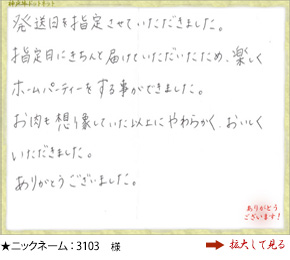 発送日を指定させていただきました。
指定日にきちんと届けていただいたため、楽しく
ホームパーティーをする事ができました。
お肉も想像していた以上にやわらかく、おいしく
いただきました。
ありがとうございました。
ありがとう
ございます!
★ニックネーム：3103 様
➡拡大して見る